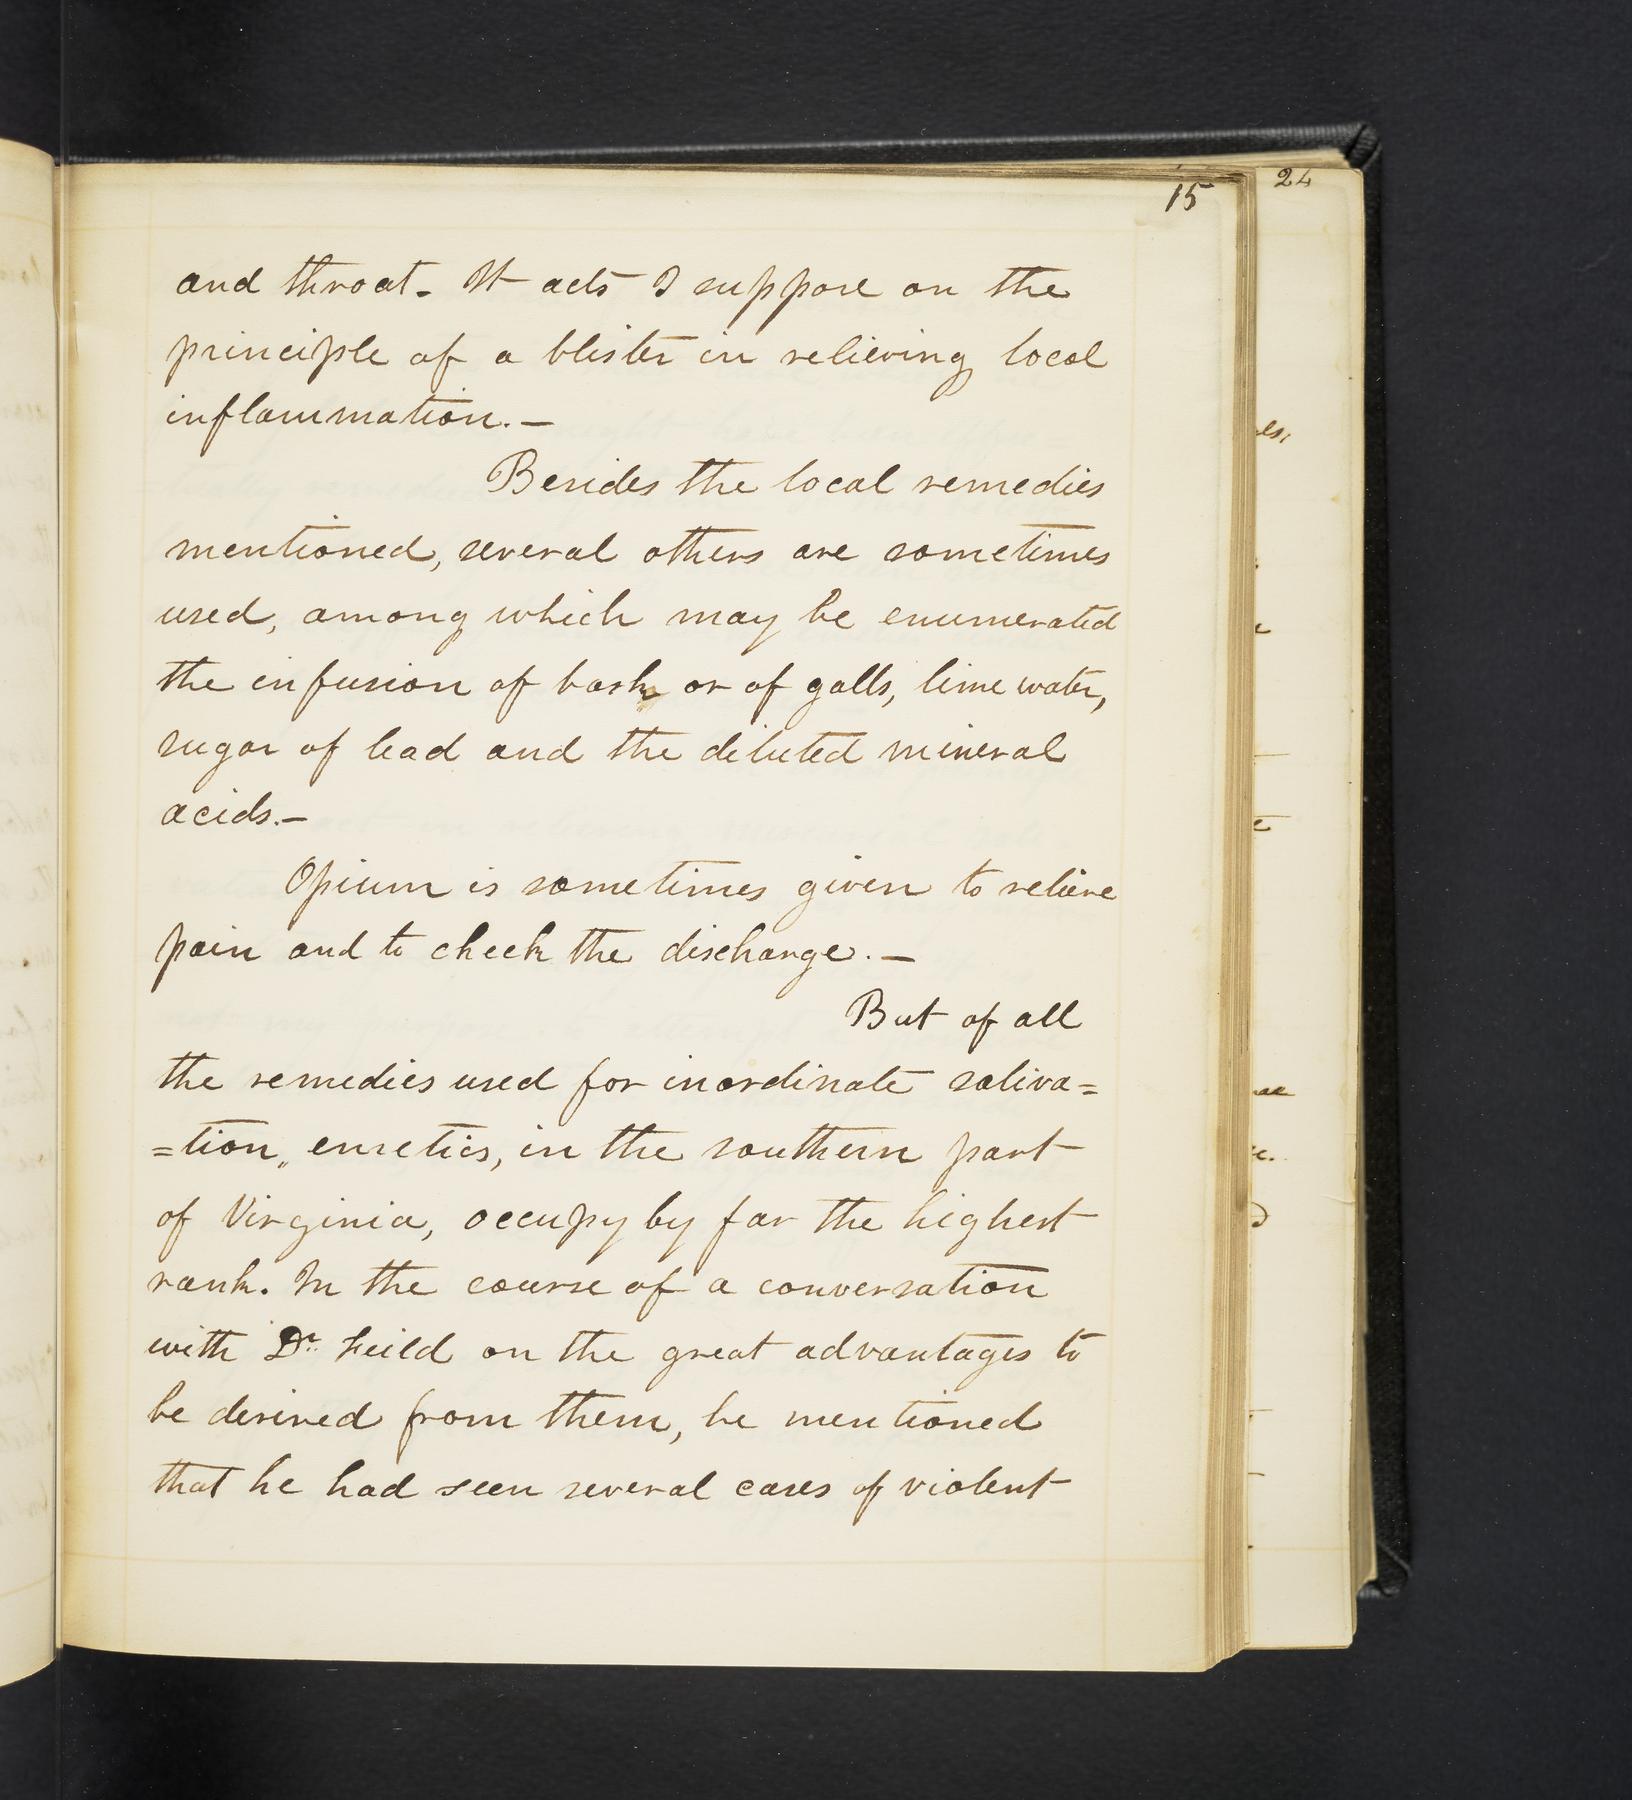 15
24
and throat. It acts I suppose on the
principle of a blister in relieving local
inflammation. —
Besides the local remedies
mentioned, several others are sometimes
used, among which may be enumerated
the infusion of bark or of galls, lime water,
sugar of lead and the diluted mineral
acids. —
Opium is sometimes given to relieve
pain and to check the discharge. —
But of all
the remedies used for inordinate saliva=
=tion,, emetics, in the southern part
of Virginia, occupy by far the highest
rank. In the course of a conversation
with Dr. Feild on the great advantages to
be derived from them, he mentioned
that he had seen several cases of violent